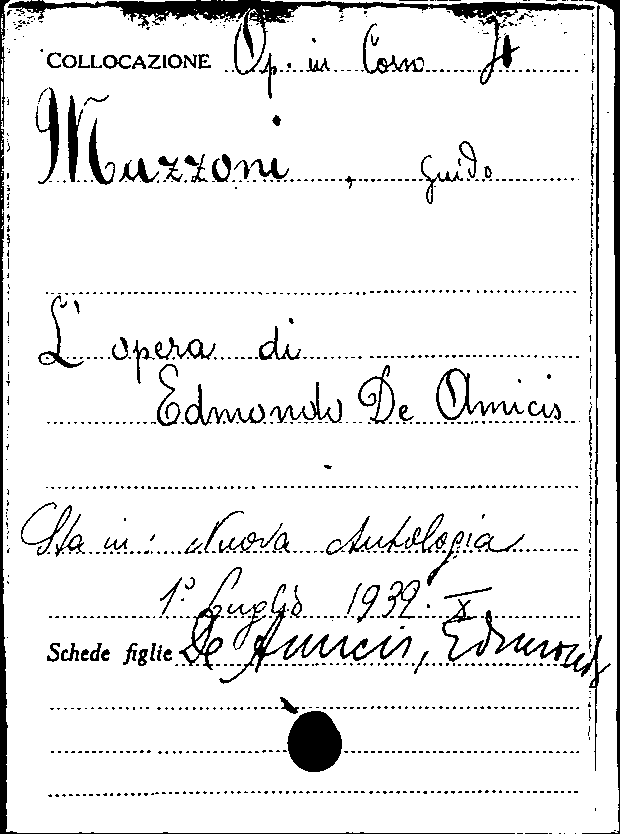 COLLOCAZIONE Op. in Corso It
Mazzoni, Guido
L'opera di
Edmondo De Amicis
Sta in: Nuova Antologia
1° Luglio 1932. X
Schede figlie De Amicis, Edmondo